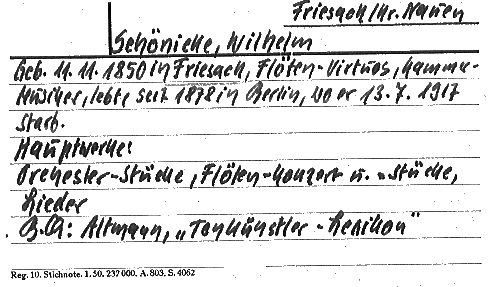 Friesach/Kr. Nauen
Schönicke, Wilhelm
Geb. 11. 11. 1850 in Friesach, Flöten-Virtuos, Kammer-
Musiker, lebte seit 1878 in Berlin, wo er 13. 7. 1917
starb.
Hauptwerke:
Orchester-Stücke, Flöten-Konzert u. -Stücke,
Lieder
B.Qu: Altmann, „Tonkünstler-Lexikon"
Reg. 10. Stichnote. 1. 50. 237 000. A. 803. S. 4062